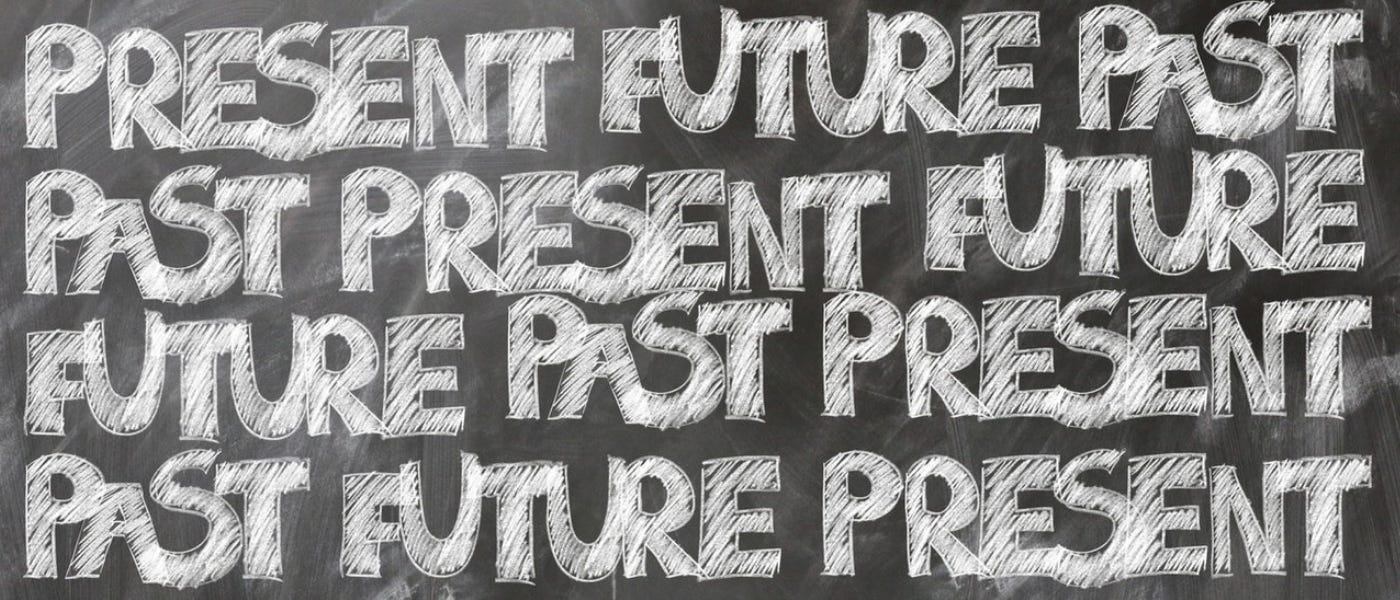 PRESENT FUTURE PAST
PAST PRESENT FUTURE
FUTURE PAST PRESENT
PAST FUTURE PRESENT